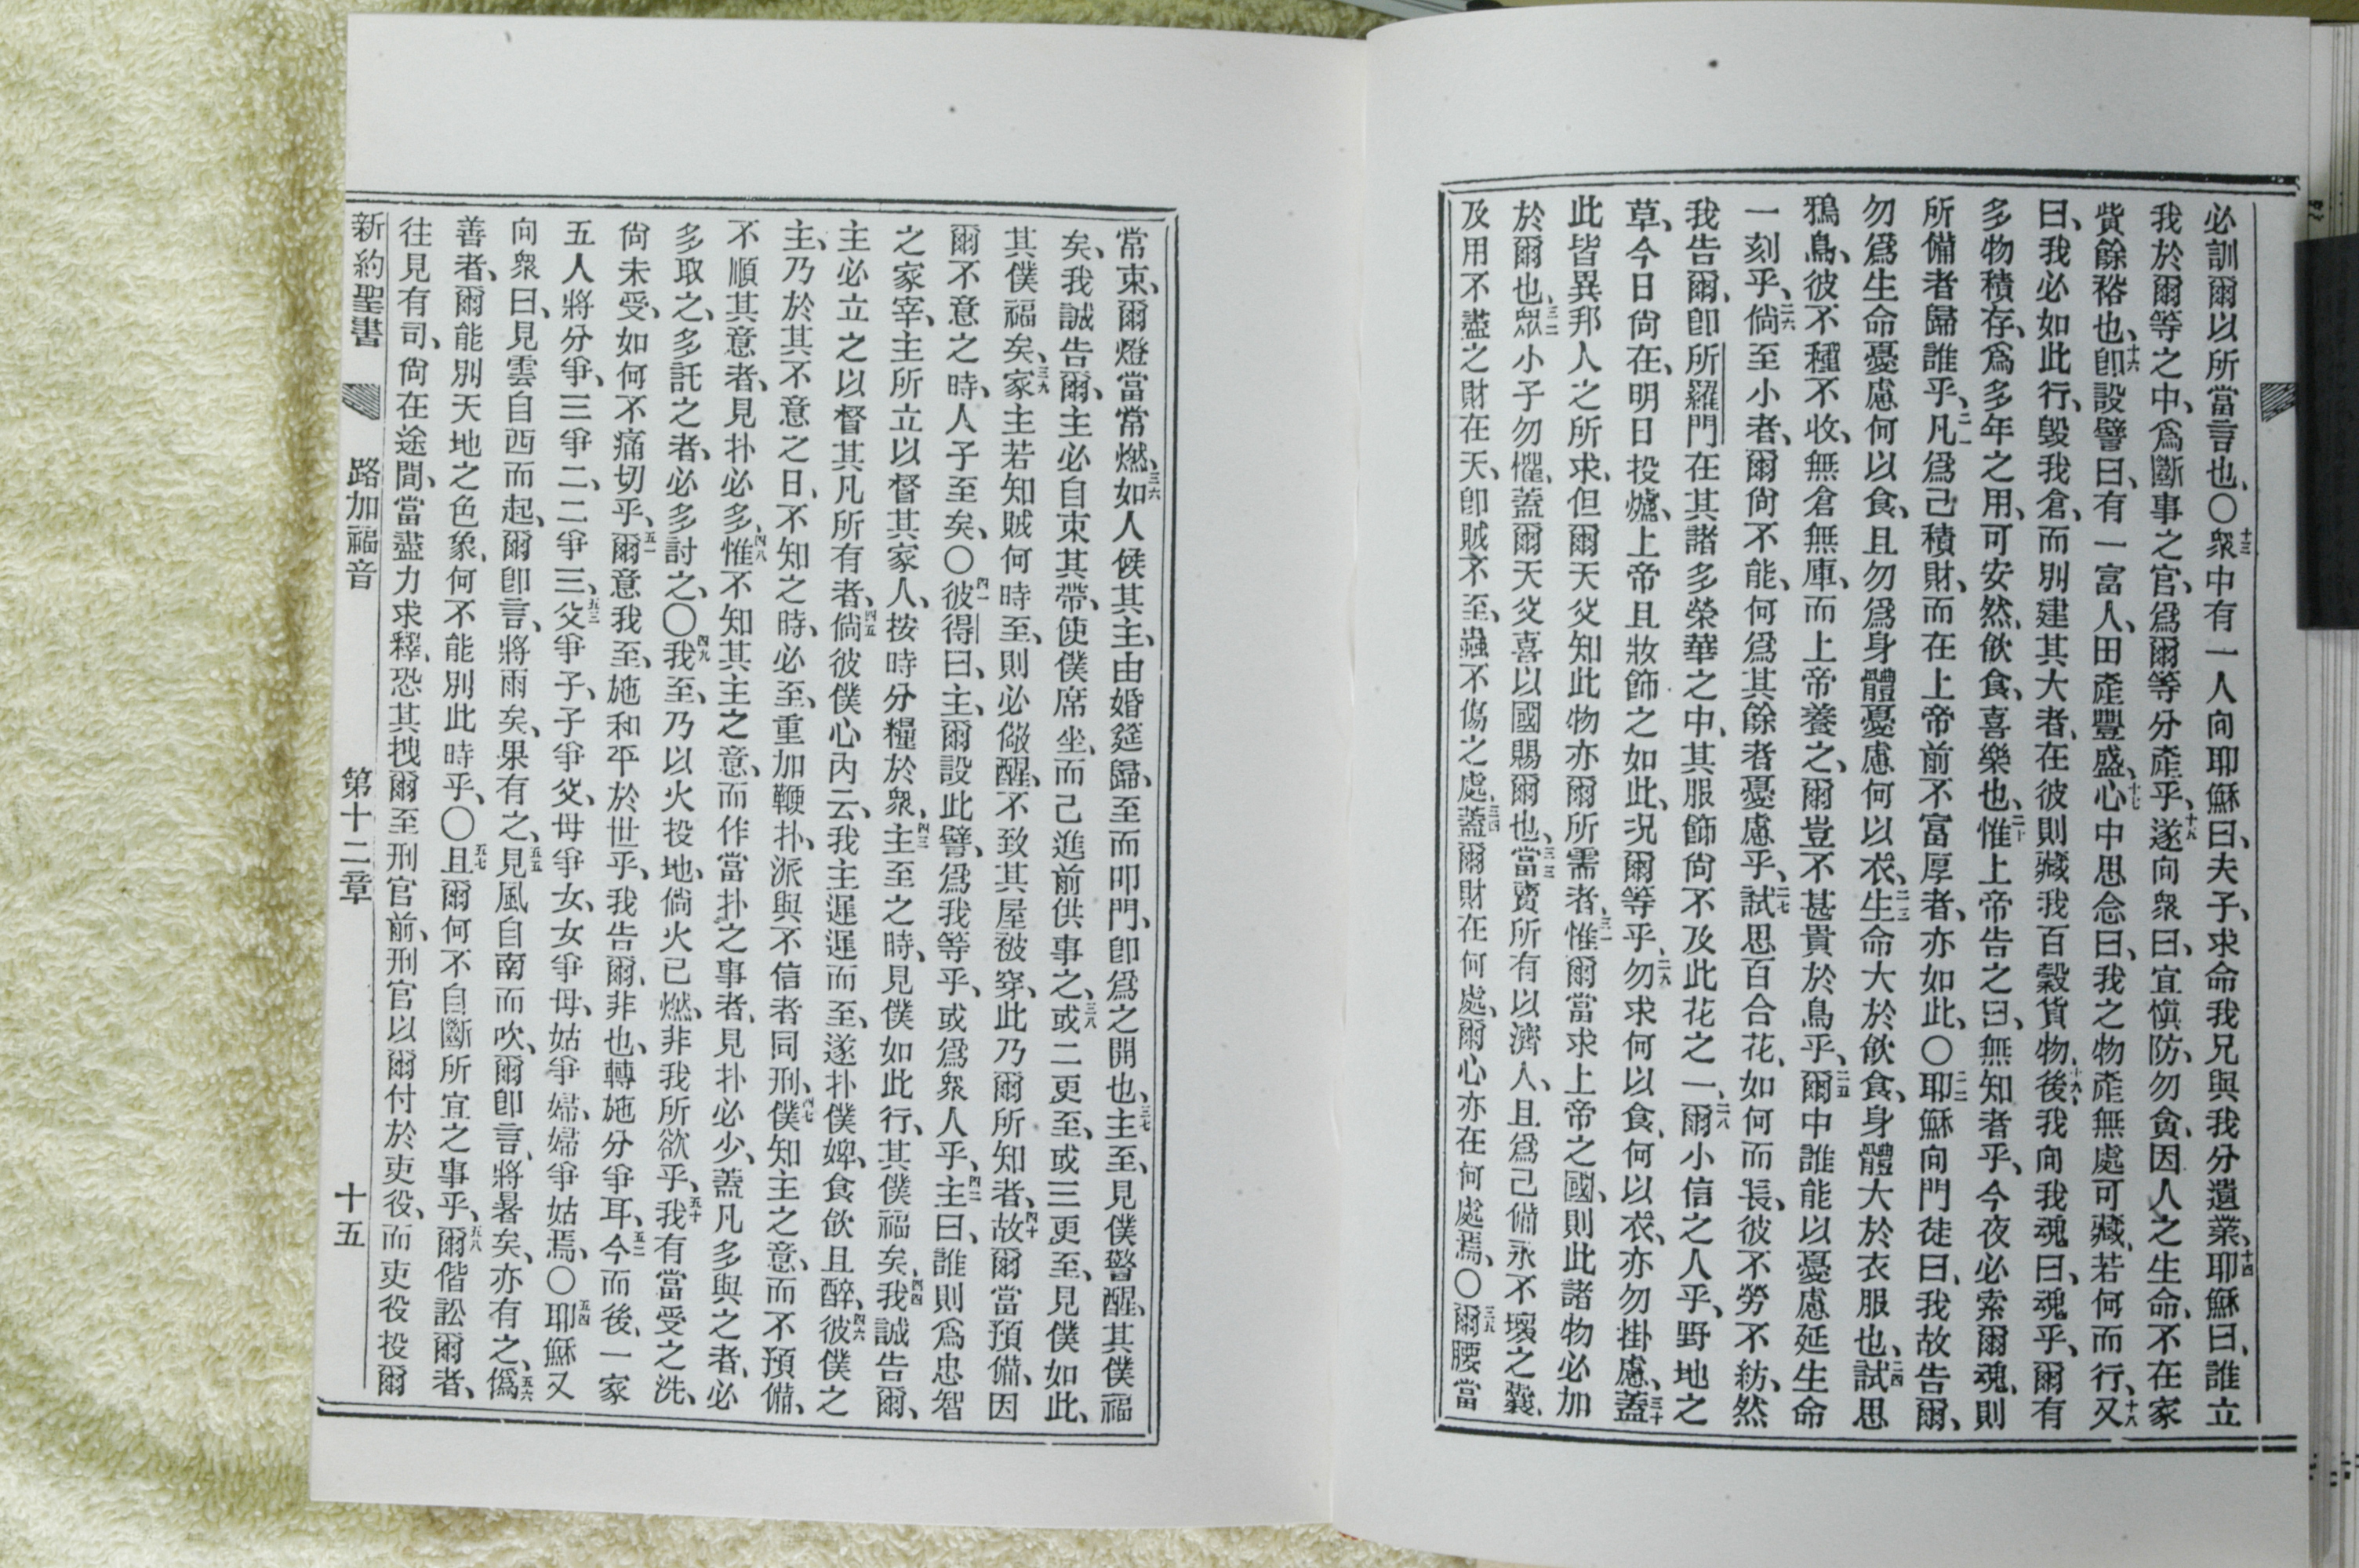 必訓爾以所當言也、〇十三衆中有一人向耶穌曰、夫子、求命我兄與我分遺業、十四耶穌曰、誰立
我於爾等之中、爲斷事之官、爲爾等分產乎、十五遂向衆曰、宜愼防、勿貪、因人之生命、不在家
貲餘裕也、十六卽設譬曰、有一富人、田產豐盛、十七心中思念曰、我之物產無處可藏、若何而行、十八又
曰、我必如此行、毀我倉、而別建其大者、在彼則藏我百穀貨物、十九後我向我魂曰、魂乎、爾有
多物積存、爲多年之用、可安然、飮食、喜樂也、二十惟上帝告之曰、無知者乎、今夜必索爾魂、則
所備者歸誰乎、二一凡爲己積財、而在上帝前不富厚者、亦如此、〇二二耶穌向門徒曰、我故告爾、
勿爲生命憂慮何以食、且勿爲身體憂慮何以衣、二三生命大於飮食、身體大於衣服也、二四試思
鴉鳥、彼不種不收、無倉無庫、而上帝養之、爾豈不甚貴於鳥乎、二五爾中誰能以憂慮延生命
一刻乎、二六倘至小者、爾尙不能、何爲其餘者憂慮乎、二七試思百合花、如何而長、彼不勞不紡、然
我告爾、卽所羅門在其諸多榮華之中、其服飾尙不及此花之一、二八爾小信之人乎、野地之
草、今日尙在、明日投爐、上帝且妝飾之如此、況爾等乎、二九勿求何以食、何以衣、亦勿掛慮、三十蓋
此皆異邦人之所求、但爾天父知此物亦爾所需者、三一惟爾當求上帝之國、則此諸物必加
於爾也、三二衆小子勿懼、蓋爾天父喜以國賜爾也、三三當賣所有以濟人、且爲己備永不壞之囊、
及用不盡之財在天、卽賊不至、蟲不傷之處、三四蓋爾財在何處、爾心亦在何處焉、〇三五爾腰當
常束、爾燈當常燃、三六如人候其主、由婚筵歸、至而叩門、卽爲之開也、三七主至、見僕警醒、其僕福
矣、我誠告爾、主必自束其帶、使僕席坐、而己進前供事之、三八或二更至、或三更至、見僕如此、
其僕福矣、三九家主若知賊何時至、則必儆醒、不致其屋被穿、此乃爾所知者、四十故爾當預備、因
爾不意之時、人子至矣、〇四一彼得曰、主、爾設此譬、爲我等乎、或爲衆人乎、四二主曰、誰則爲忠智
之家宰、主所立以督其家人、按時分糧於衆、四三主至之時、見僕如此行、其僕福矣、四四我誠告爾、
主必立之以督其凡所有者、四五倘彼僕心內云、我主遲遲而至、遂扑僕婢、食飮且醉、四六彼僕之
主、乃於其不意之日、不知之時、必至、重加鞭扑、派與不信者同刑、四七僕知主之意、而不預備、
不順其意者、見扑必多、四八惟不知其主之意、而作當扑之事者、見扑必少、蓋凡多與之者、必
多取之、多託之者、必多討之、〇四九我至、乃以火投地、倘火已燃、非我所欲乎、五十我有當受之洗、
尙未受、如何不痛切乎、五一爾意我至、施和平於世乎、我告爾、非也、轉施分爭耳、五二今而後、一家
五人將分爭、三爭二、二爭三、五三父爭子、子爭父、母爭女、女爭母、姑爭婦、婦爭姑焉、〇五四耶穌又
向衆曰、見雲自西而起、爾卽言、將雨矣、果有之、五五見風自南而吹、爾卽言、將暑矣、亦有之、五六僞
善者、爾能別天地之色象、何不能別此時乎、〇五七且爾何不自斷所宜之事乎、五八爾偕訟爾者、
往見有司、尙在途間、當盡力求釋、恐其拽爾至刑官前、刑官以爾付於吏役、而吏役投爾
新約聖書 路加福音 第十二章 十五